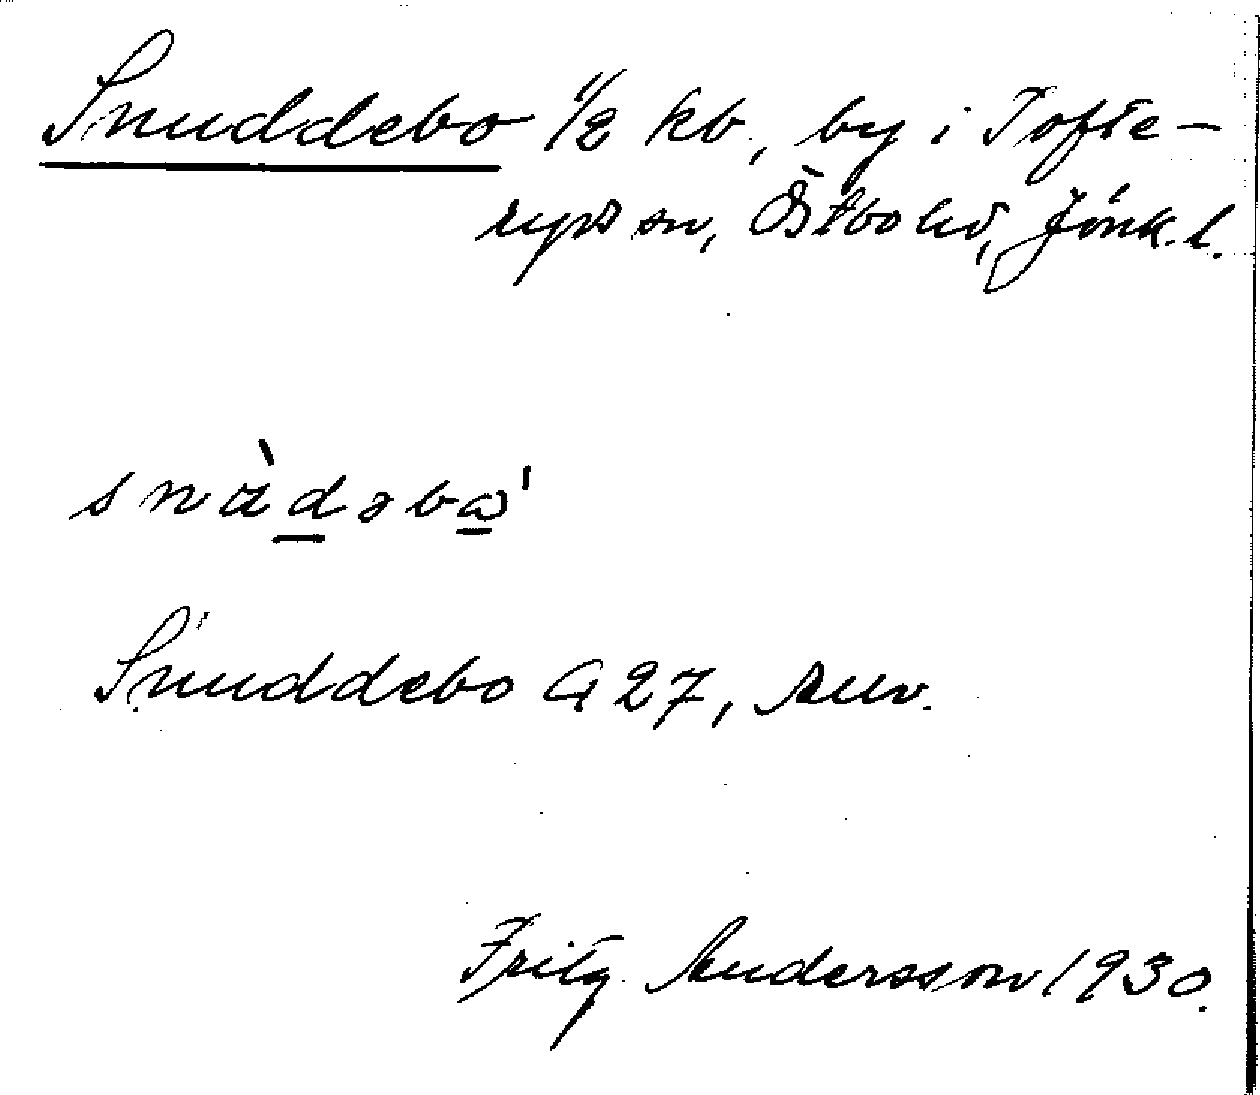 Snuddebo 1/2 kb, by i Tofte-
ryds sn, Östbo hd, Jönk. l.
Snuddebo G 27,
Fritz Andersson 1930.